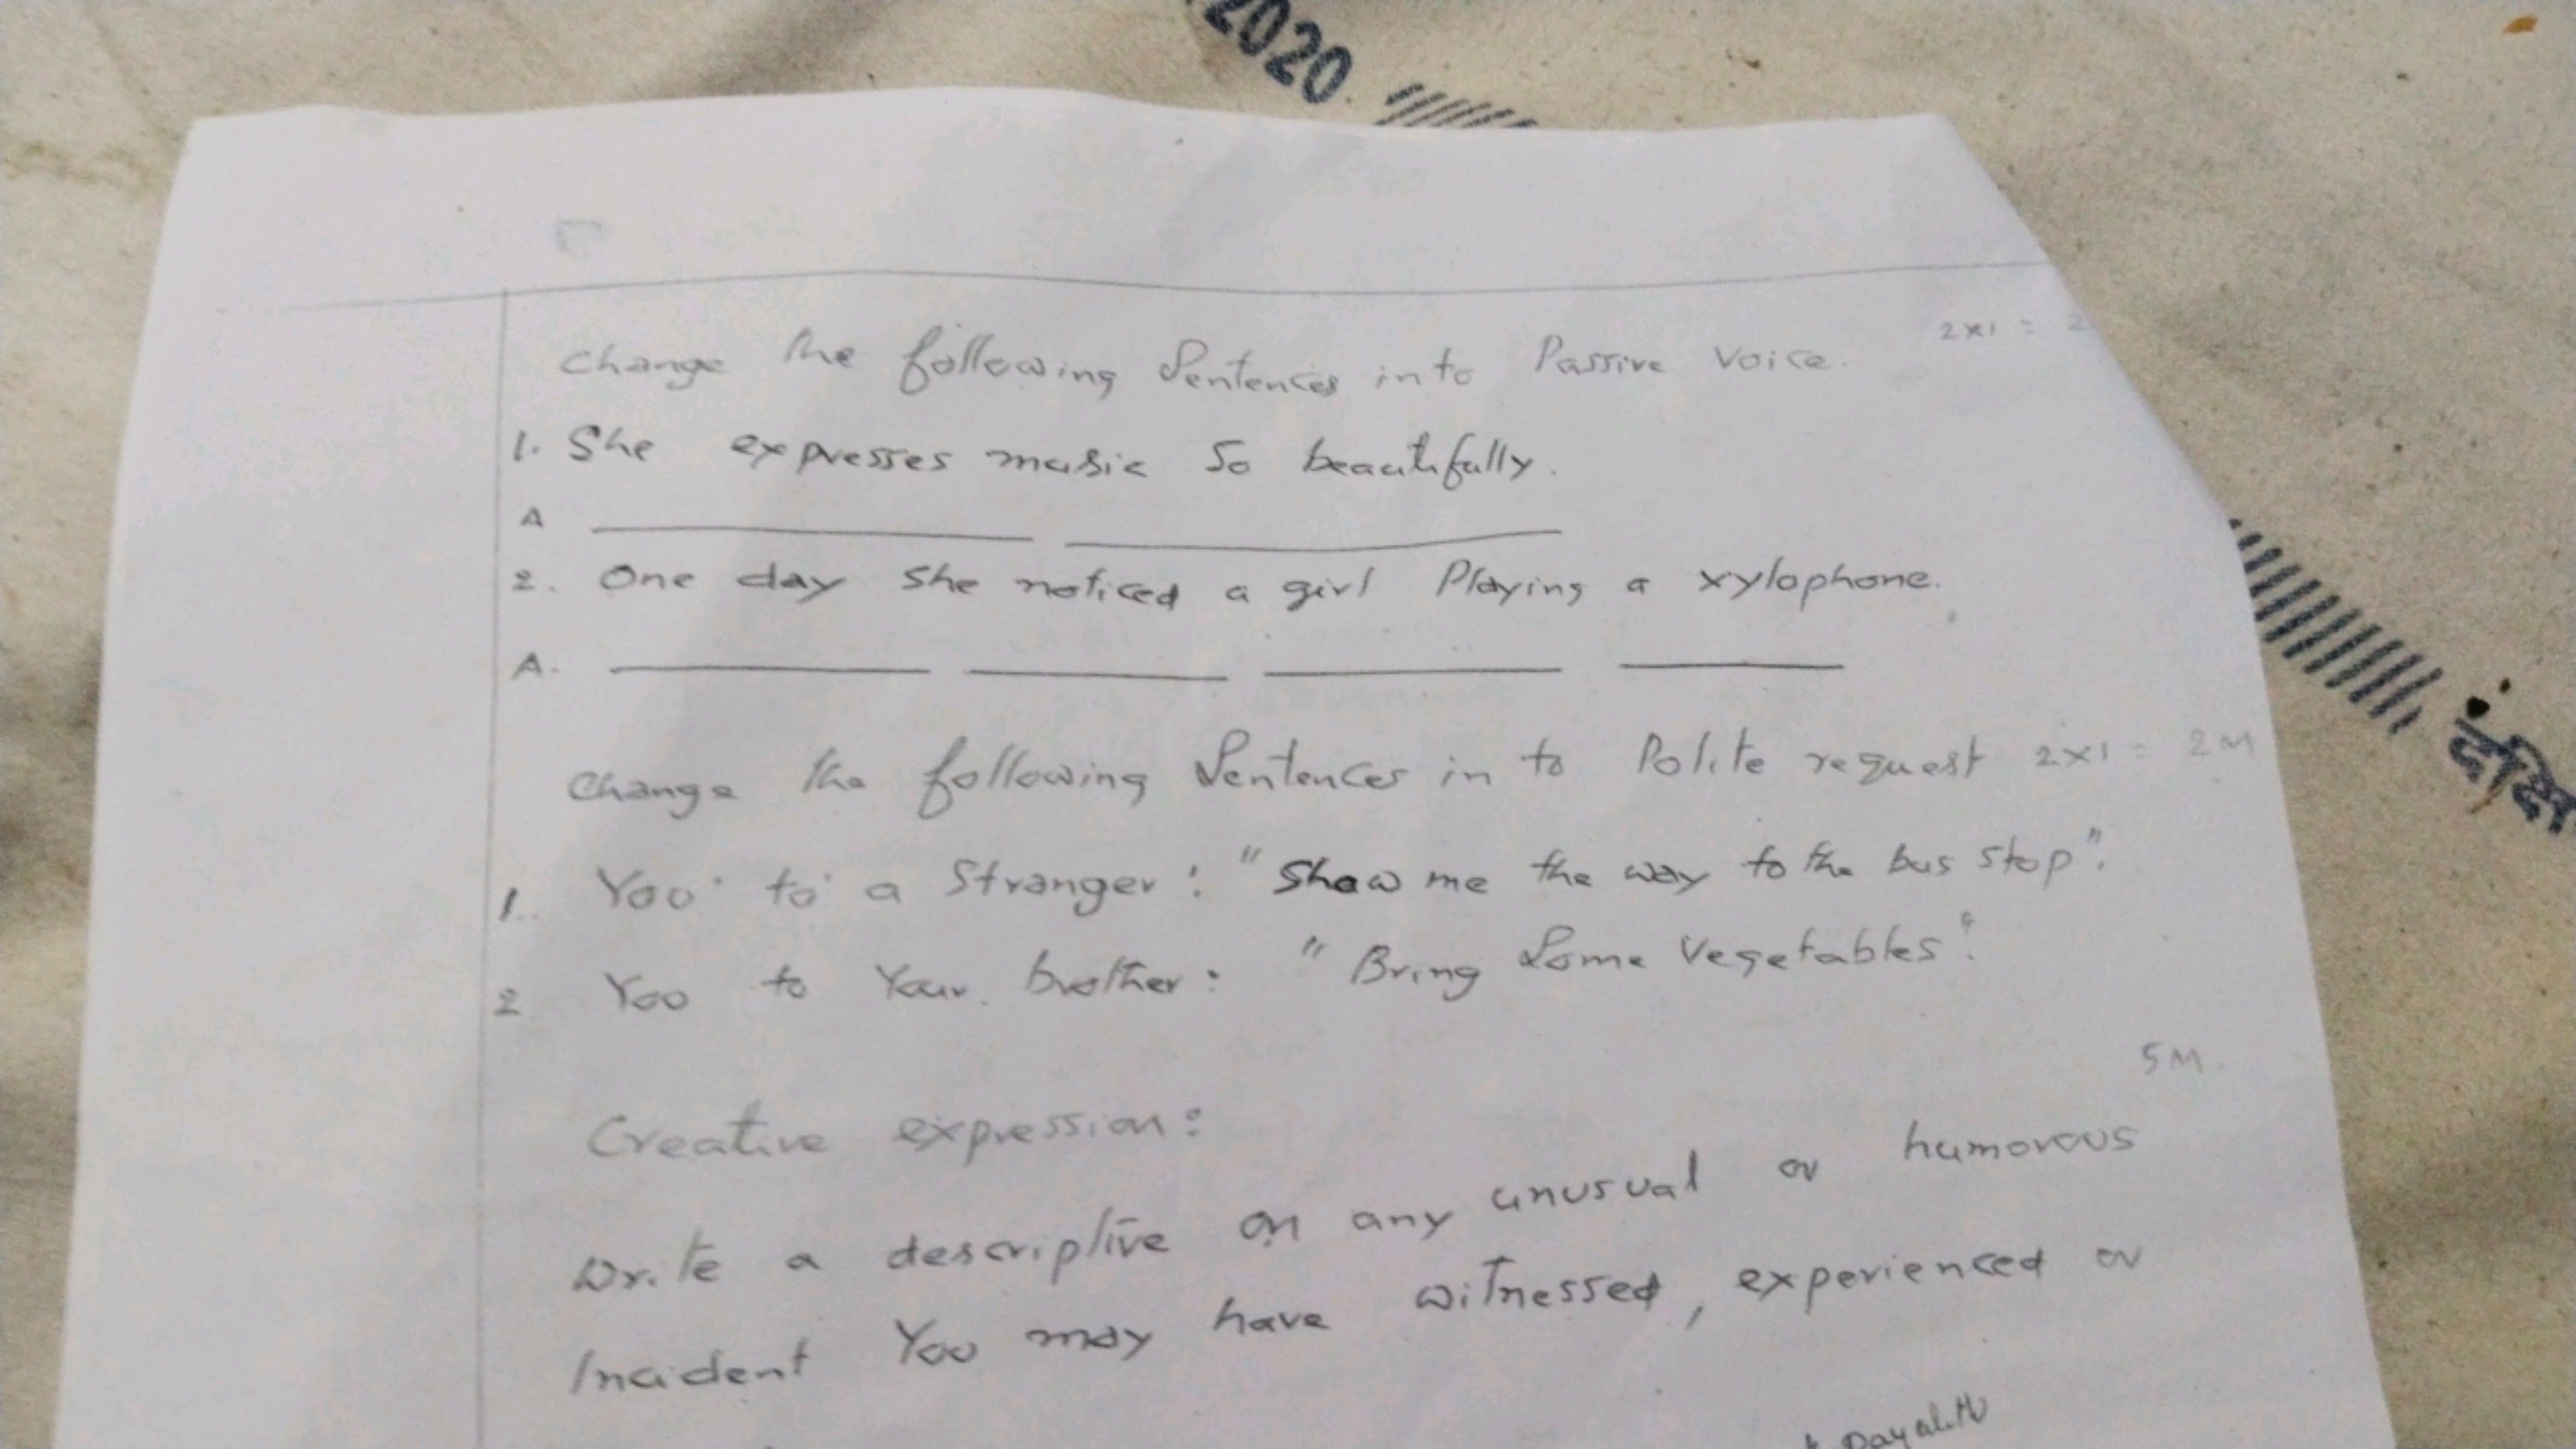 2020
Change the following Sentences into Passive Voice. 2x1 = 2
1. She expresses music so beautifully.
A
2. One day She noticed a girl Playing a xylophone.
A.
Change the following Sentences in to Polite request 2x1 = 2M
1. You to a Stranger : "Show me the way to the bus stop".
2 You to Your brother : "Bring Some Vegetables".
5M.
Creative expression :
Write a descriptive on any unusual or humorous
Incident You may have witnessed, experienced or